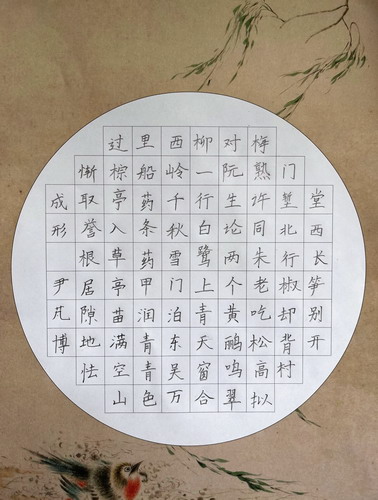 堂西长笋别开
门堑北行椒却背村
梅熟许同朱老吃松高拟
对阮生论两个黄鹂鸣翠
柳一行白鹭上青天窗合
西岭千秋雪门泊东吴万
里船药条药甲润青青色
过棕亭入草亭苗满空山
惭取誉根居隙地怯
成形
尹芃博